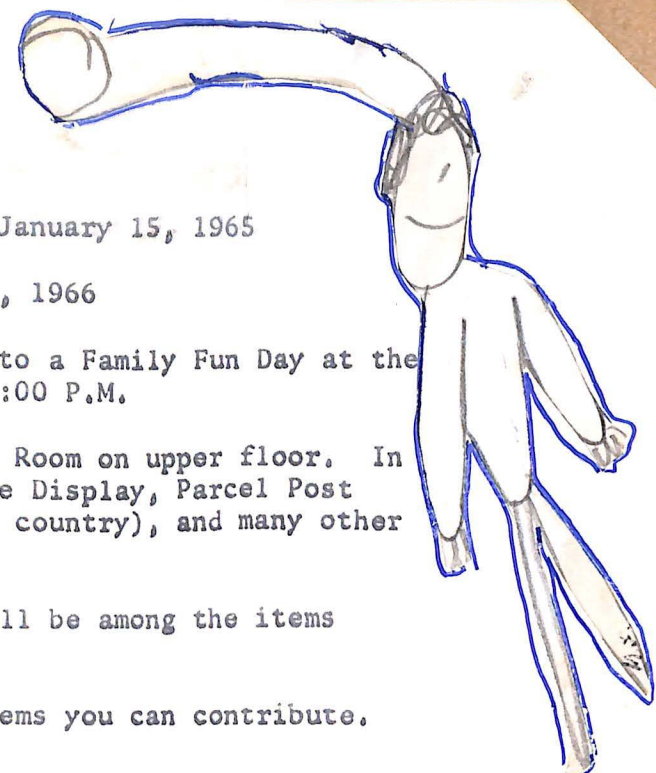 January 15, 1965
, 1966
to a Family Fun Day at the
:00 P.M.
Room on upper floor. In
e Display, Parcel Post
country), and many other
ll be among the items
ems you can contribute.